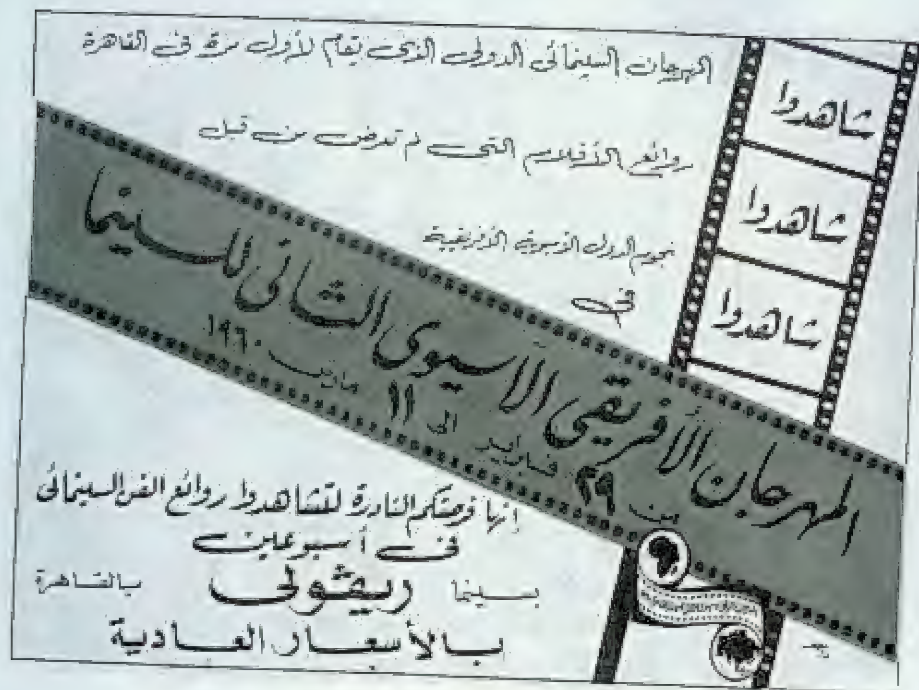 المهرجان السينمائى الدولى الذى يقام لأول مرة فى القاهرة
روائع الأفلام التى لم تعرض من قبل
نجوم الدول الآسيوية الأفريقية
فى
شاهدوا
شاهدوا
شاهدوا
المهرجان الأفريقى الآسيوى الثانى للسينما
من ٢٩ فبراير الى ١١ مارس ١٩٦٠
انها فرصتكم النادرة لتشاهدوا روائع الفن السينمائى
فى أسبوعين
بسينما ريڤولى بالقاهرة
بالأسعار العادية